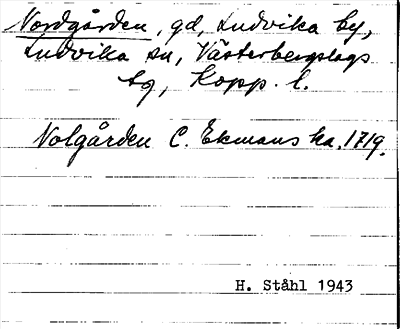 Nordgården, gd, Ludvika by,
Ludvika sn, Västerbergslags
tg, Kopp. l.
Nolgården C. Ekmans ka. 1719.
H. Ståhl 1943